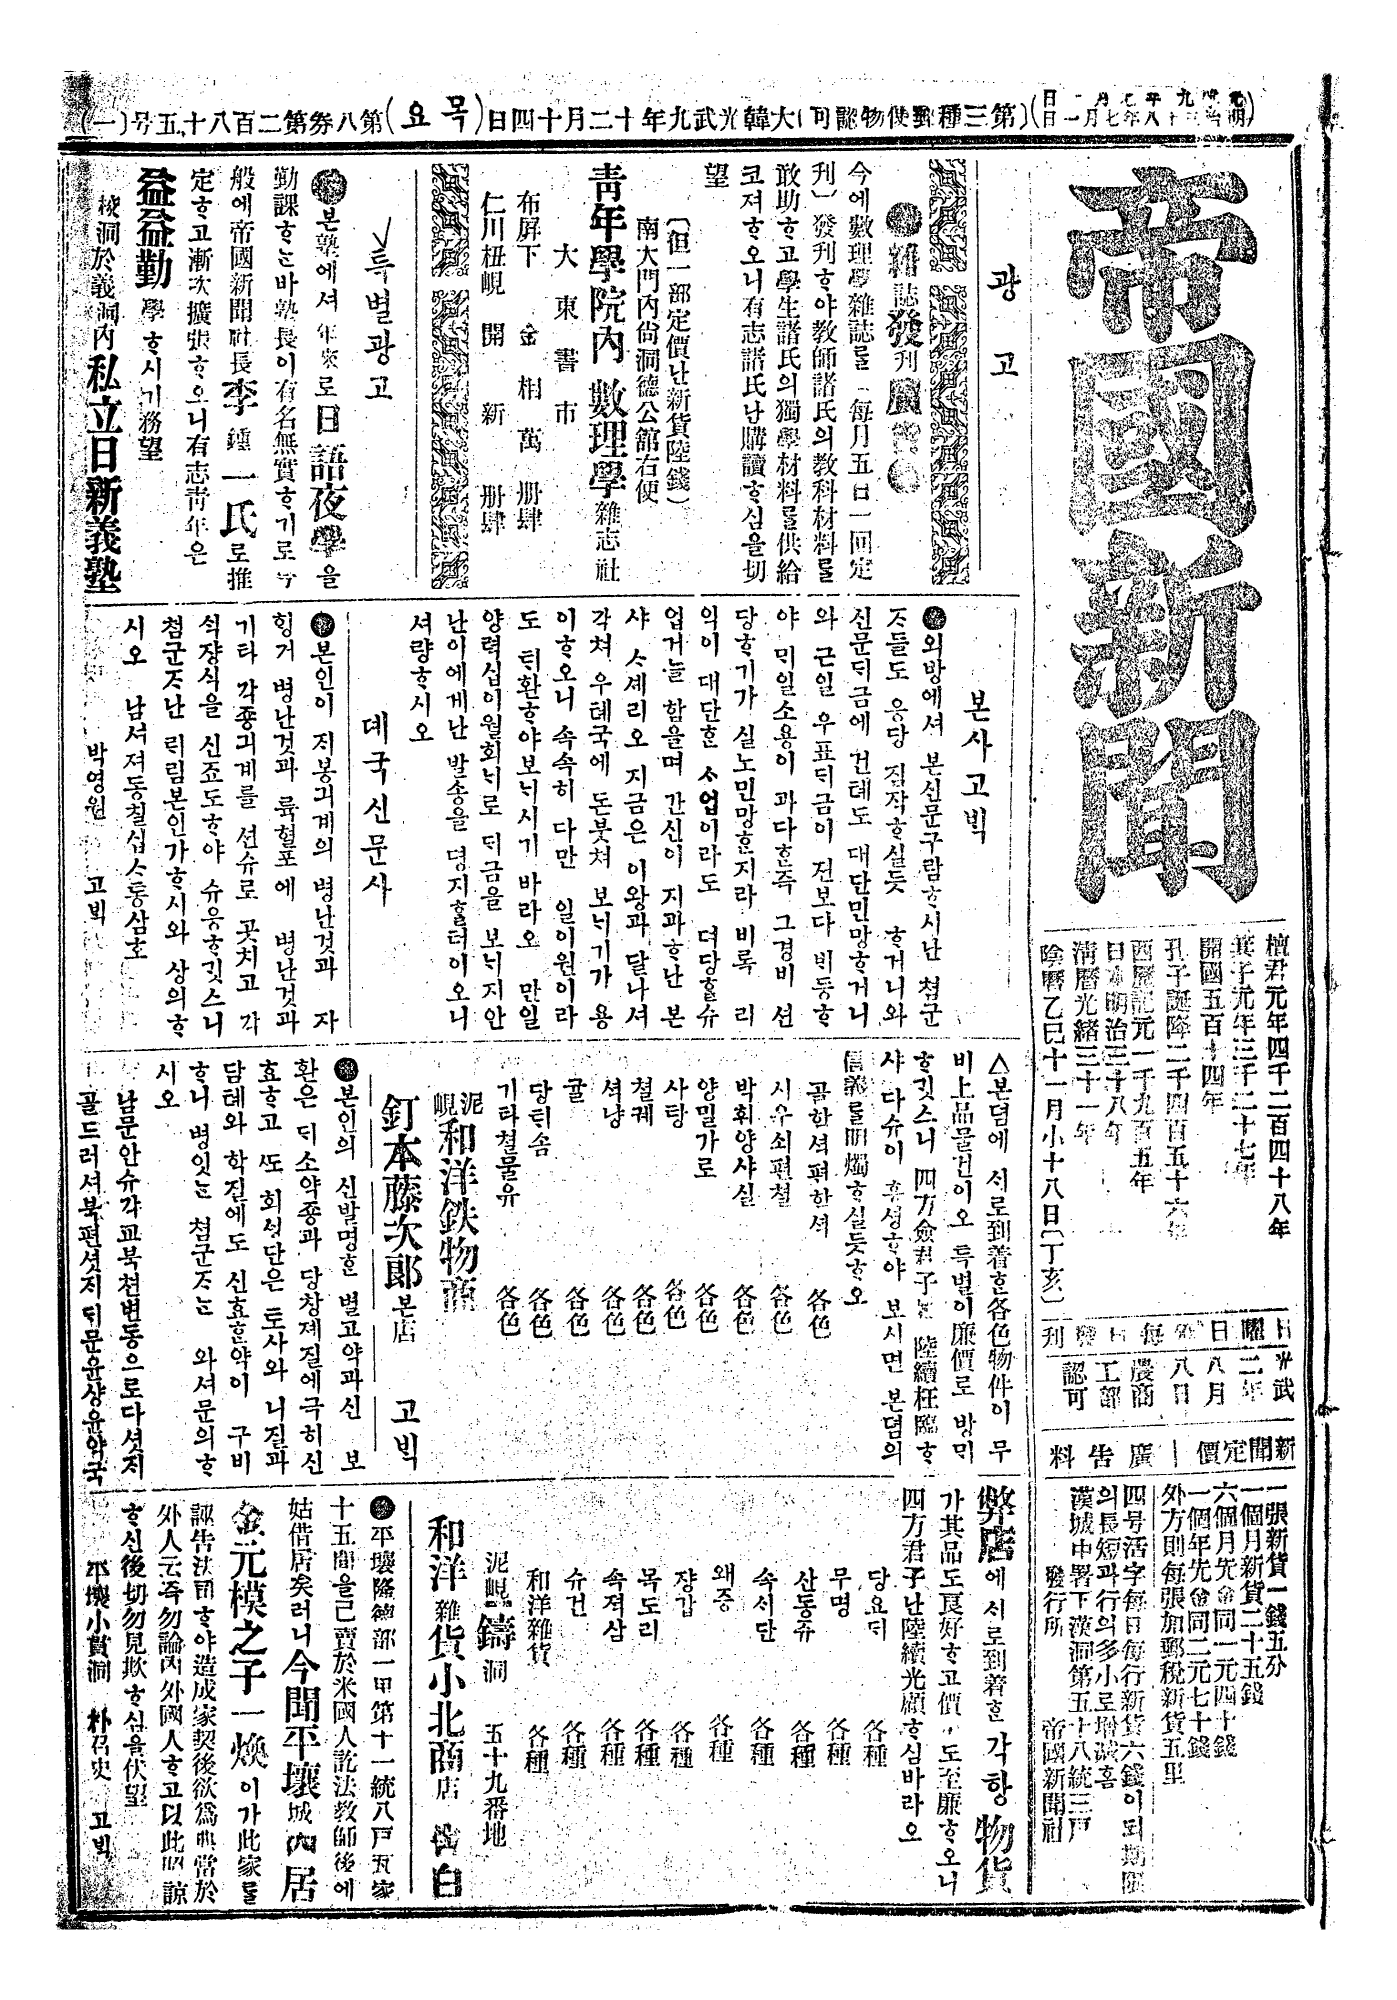 (第三種郵便物認可)大韓光武九年十二月十四日(목요)第八券第二百八十五号(一)
帝國新聞
檀君元年四千二百四十八年
箕子元年三千二十七年
開國五百十四年
孔子誕降二千四百五十六年
西曆記元一千九百五年
日本明治三十八年
清曆光緖三十一年
陰曆乙巳十一月小十八日(丁亥)
日曜日外每日發刊
光武二年八月八日農商工部認可
新聞定價 廣告料
一張新貨一錢五分
一個月新貨二十五錢
六個月先金同一元四十錢
一個年先金同二元七十錢
外方則每張加郵稅新貨五里
四号活字每日每行新貨六錢이되期限
의長短과行의多小로增減홈
漢城中署下漢洞第五十八統三戶
發行所 帝國新聞社
광고
●雜誌發刊廣告●
今에數理學雜誌를(每月五日一回定
刊)發刊ᄒᆞ야敎師諸氏의敎科材料를
敢助ᄒᆞ고學生諸氏의獨學材料를供給
코져ᄒᆞ오니有志諸氏난購讀ᄒᆞ심을切
望
(但一部定價난新貨陸錢)
南大門內尙洞德公館右便
靑年學院內 數理學雜志社
大東書市
布屛下 金相萬 册肆
仁川杻峴 開新 册肆
특별광고
●본塾에셔年來로日語夜學을
勤課ᄒᆞ는바塾長이有名無實ᄒᆞ기로今
般에帝國新聞社長李鍾一氏로推
定ᄒᆞ고漸次擴張ᄒᆞ오니有志靑年은
益益勤學ᄒᆞ시기務望
校洞於義洞內私立日新義塾
본사고ᄇᆡᆨ
●외방에셔 본신문구람ᄒᆞ시난 쳠군
ᄌᆞ들도 응당 짐작ᄒᆞ실듯 ᄒᆞ거니와
신문ᄃᆡ금에 건톄도 대단민망ᄒᆞ거니
와 근일 우표ᄃᆡ금이 젼보다 ᄇᆡ등ᄒᆞ
야 ᄆᆡ일소용이 과다ᄒᆞᆫ즉 그경비 션
당ᄒᆞ기가 실노민망ᄒᆞᆫ지라 비록 리
익이 대단ᄒᆞᆫ ᄉᆞ업이라도 뎌당ᄒᆞᆯ슈
업거늘 함을며 간신이 지과ᄒᆞ난 본
샤 ᄉᆞ셰리오 지금은 이왕과 달나셔
각쳐 우톄국에 돈붓쳐 보ᄂᆡ기가 용
이ᄒᆞ오니 속속히 다만 일이원이라
도 ᄐᆡ환ᄒᆞ야보ᄂᆡ시기 바라오 만일
양력십이월회ᄂᆡ로 ᄃᆡ금을 보ᄂᆡ지안
난이에게난 발송을 뎡지ᄒᆞᆯ터이오니
셔량ᄒᆞ시오
뎨국신문사
●본인이 ᄌᆡ봉긔계의 병난것과 자
힝거 병난것과 륙혈포에 병난것과
기타 각죵긔계를 션슈로 곳치고 각
ᄉᆡᆨ쟝식을 신죠도ᄒᆞ야 슈응ᄒᆞ깃스니
쳠군ᄌᆞ난 ᄅᆡ림본인가ᄒᆞ시와 상의ᄒᆞ
시오 남셔져동칠십ᄉᆞ통삼호
박영원 고ᄇᆡᆨ
△본뎜에 ᄉᆡ로到着ᄒᆞᆫ各色物件이 무
비上品물건이오 특별이廉價로 방ᄆᆡ
ᄒᆞ깃스니 四方僉君子는 陸續枉臨ᄒᆞ
샤 다슈이 흥셩ᄒᆞ야 보시면 본뎜의
信義를明燭ᄒᆞ실듯ᄒᆞ오
골한셕편한셕 各色
시우쇠편쳘 各色
박휘양사실 各色
양밀가로 各色
사탕 各色
쳘궤 各色
셔냥 各色
귤 各色
당ᄃᆡ솜 各色
기타쳘물유 各色
泥峴和洋鉄物商
釘本藤次郞本店 고ᄇᆡᆨ
●본인의 신발명ᄒᆞᆫ 별고약과신 보
환은 ᄃᆡ소약죵과 당창졔질에극히신
효ᄒᆞ고 ᄯᅩ 회ᄉᆡᆼ단은 토사와 니질과
담톄와 학질에도 신효ᄒᆞᆫ약이 구비
ᄒᆞ니 병잇는 쳠군ᄌᆞ는 와셔문의ᄒᆞ
시오
남문안슈각교북쳔변동으로다셧ᄌᆡ
골드러셔북편셧ᄌᆡᄃᆡ문윤샹윤약국
弊店에ᄉᆡ로到着ᄒᆞᆫ 각항物貨
가其品도良好ᄒᆞ고價도至廉ᄒᆞ오니
四方君子난陸續光顧ᄒᆞ심바라오
당요ᄃᆡ 各種
무명 各種
산동쥬 各種
속시단 各種
왜증 各種
쟝갑 各種
목도리 各種
속져삼 各種
슈건 各種
和洋雜貨 各種
泥峴鑄洞 五十九番地
和洋雜貨小北商店 告白
●平壤隆德部一里第十一統八戶瓦家
十五間을己賣於米國人訖法敎師後에
姑借居矣러니今聞平壤城內居
金元模之子一煥이가此家를
誣告法司ᄒᆞ야造成家契後欲爲典當於
外人云즉勿論內外國人ᄒᆞ고以此照諒
ᄒᆞ신後切勿見欺ᄒᆞ심을伏望
平壤小貫洞 朴召史 고ᄇᆡᆨ